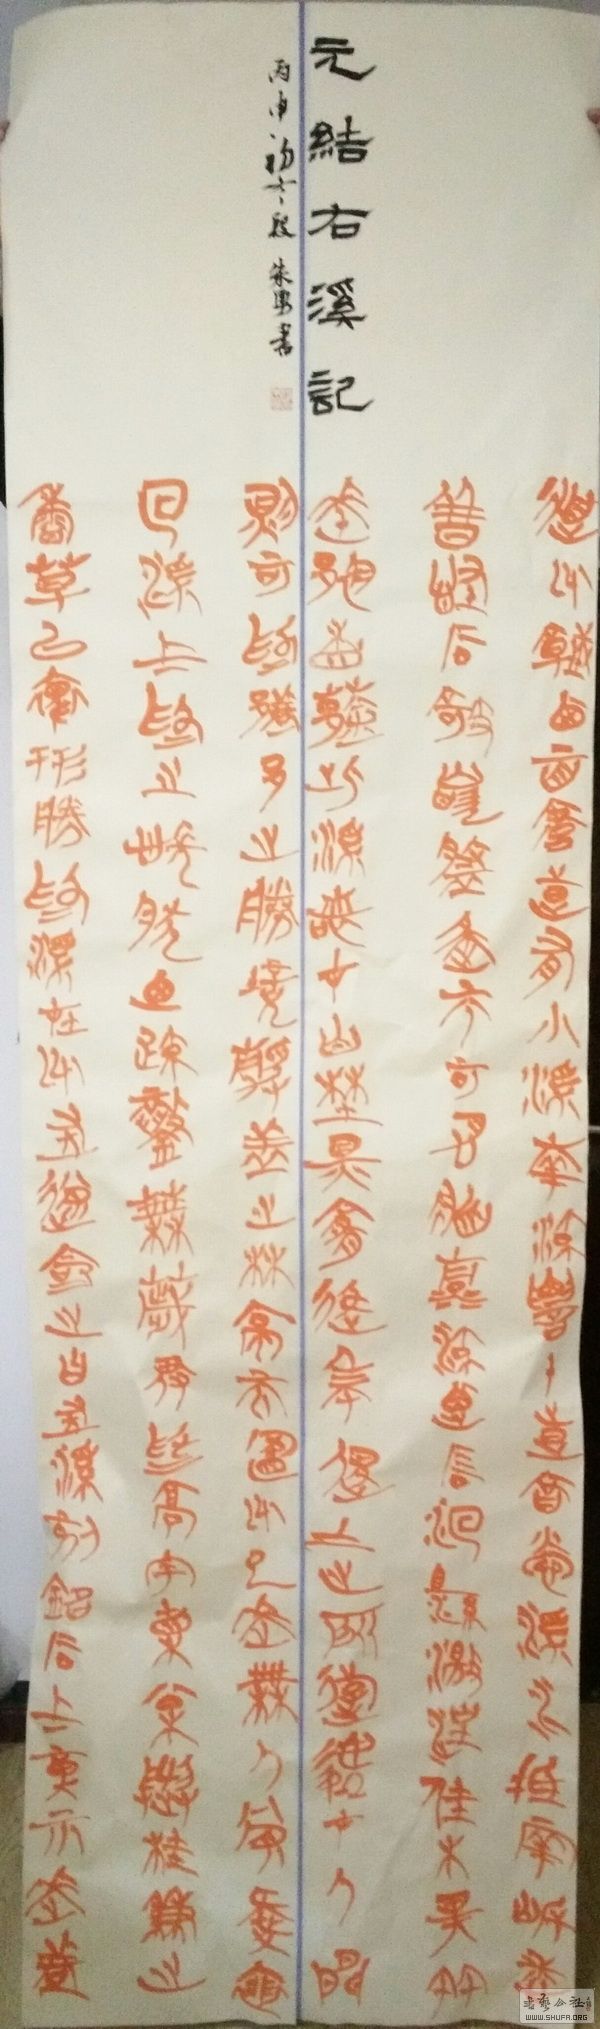 元結右溪記
丙申初冬朱勇書
道州城西百餘步有小溪南流數十步合營溪水抵兩岸悉
皆怪石欹嵌盤屈不可名狀清流觸石洄懸激注佳木異竹
垂陰相蔭此溪若在山野則宜逸民退士之所遊處在人間
則可為都邑之勝境靜者之林亭而置州已來無人賞愛徘
徊溪上為之悵然乃疏鑿蕪穢俾為亭宇植松與桂兼之
香草以裨形勝為溪在州右遂命之曰右溪刻銘石上彰示來者
WWW.SHUFA.ORG